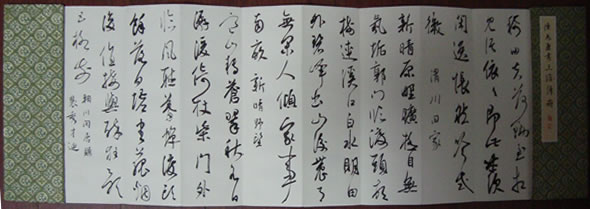 稀田夫荷鋤至相
見語依依即此羨
閒逸悵然吟式
微 渭川田家
新晴原野曠極目無
氛垢郭門臨渡頭村
樹連溪口白水明田
外碧峰出山後農月
無閒人傾家事
南畝 新晴野望
寒山轉蒼翠秋日
潺湲倚杖柴門外
臨風聽暮蟬渡頭
餘落日墟里孤煙
復值接輿醉狂歌
五柳前 輞川閒居贈
裴秀才迪